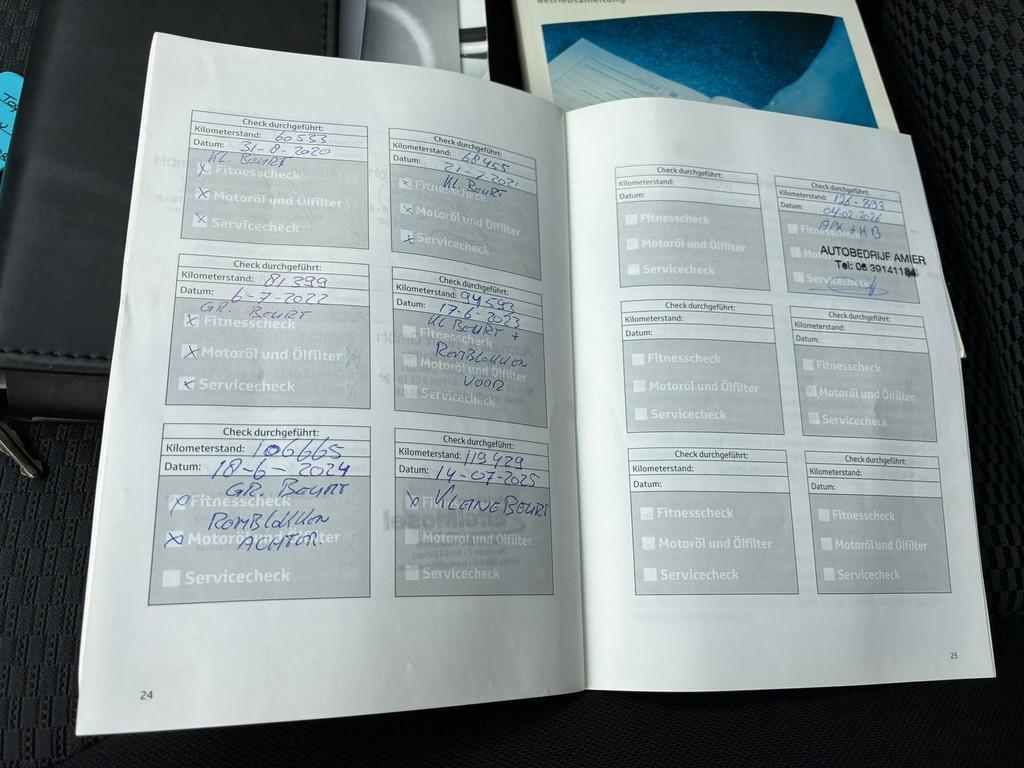 Betriebsanleitung
Check durchgeführt:
Kilometerstand: 60533
Datum: 31-8-2020
KL. BEURT
x Fitnesscheck
x Motoröl und Ölfilter
x Servicecheck
Check durchgeführt:
Kilometerstand: 68455
Datum: 21-7-2021
KL. BEURT
x Fitnesscheck
x Motoröl und Ölfilter
x Servicecheck
Check durchgeführt:
Kilometerstand: 81399
Datum: 6-7-2022
GR. BEURT
x Fitnesscheck
x Motoröl und Ölfilter
x Servicecheck
Check durchgeführt:
Kilometerstand: 94593
Datum: 17-6-2023
KL BEURT +
Fitnesscheck
REMBLOKKEN
Motoröl und Ölfilter
VOOR
Servicecheck
Check durchgeführt:
Kilometerstand: 106665
Datum: 18-6-2024
GR. BEURT
x Fitnesscheck
REMBLOKKEN
x Motoröl und Ölfilter
ACHTER
Servicecheck
Check durchgeführt:
Kilometerstand: 119429
Datum: 14-07-2025
x KLEINE BEURT
Fitnesscheck
Motoröl und Ölfilter
Servicecheck
24
Check durchgeführt:
Kilometerstand:
Datum:
Fitnesscheck
Motoröl und Ölfilter
Servicecheck
Check durchgeführt:
Kilometerstand: 126-893
Datum: 04-02-2026
APK + KB
Fitnesscheck
AUTOBEDRIJF AMIER
Tel: 06 39141184
Servicecheck
Check durchgeführt:
Kilometerstand:
Datum:
Fitnesscheck
Motoröl und Ölfilter
Servicecheck
Check durchgeführt:
Kilometerstand:
Datum:
Fitnesscheck
Motoröl und Ölfilter
Servicecheck
Check durchgeführt:
Kilometerstand:
Datum:
Fitnesscheck
Motoröl und Ölfilter
Servicecheck
Check durchgeführt:
Kilometerstand:
Datum:
Fitnesscheck
Motoröl und Ölfilter
Servicecheck
25